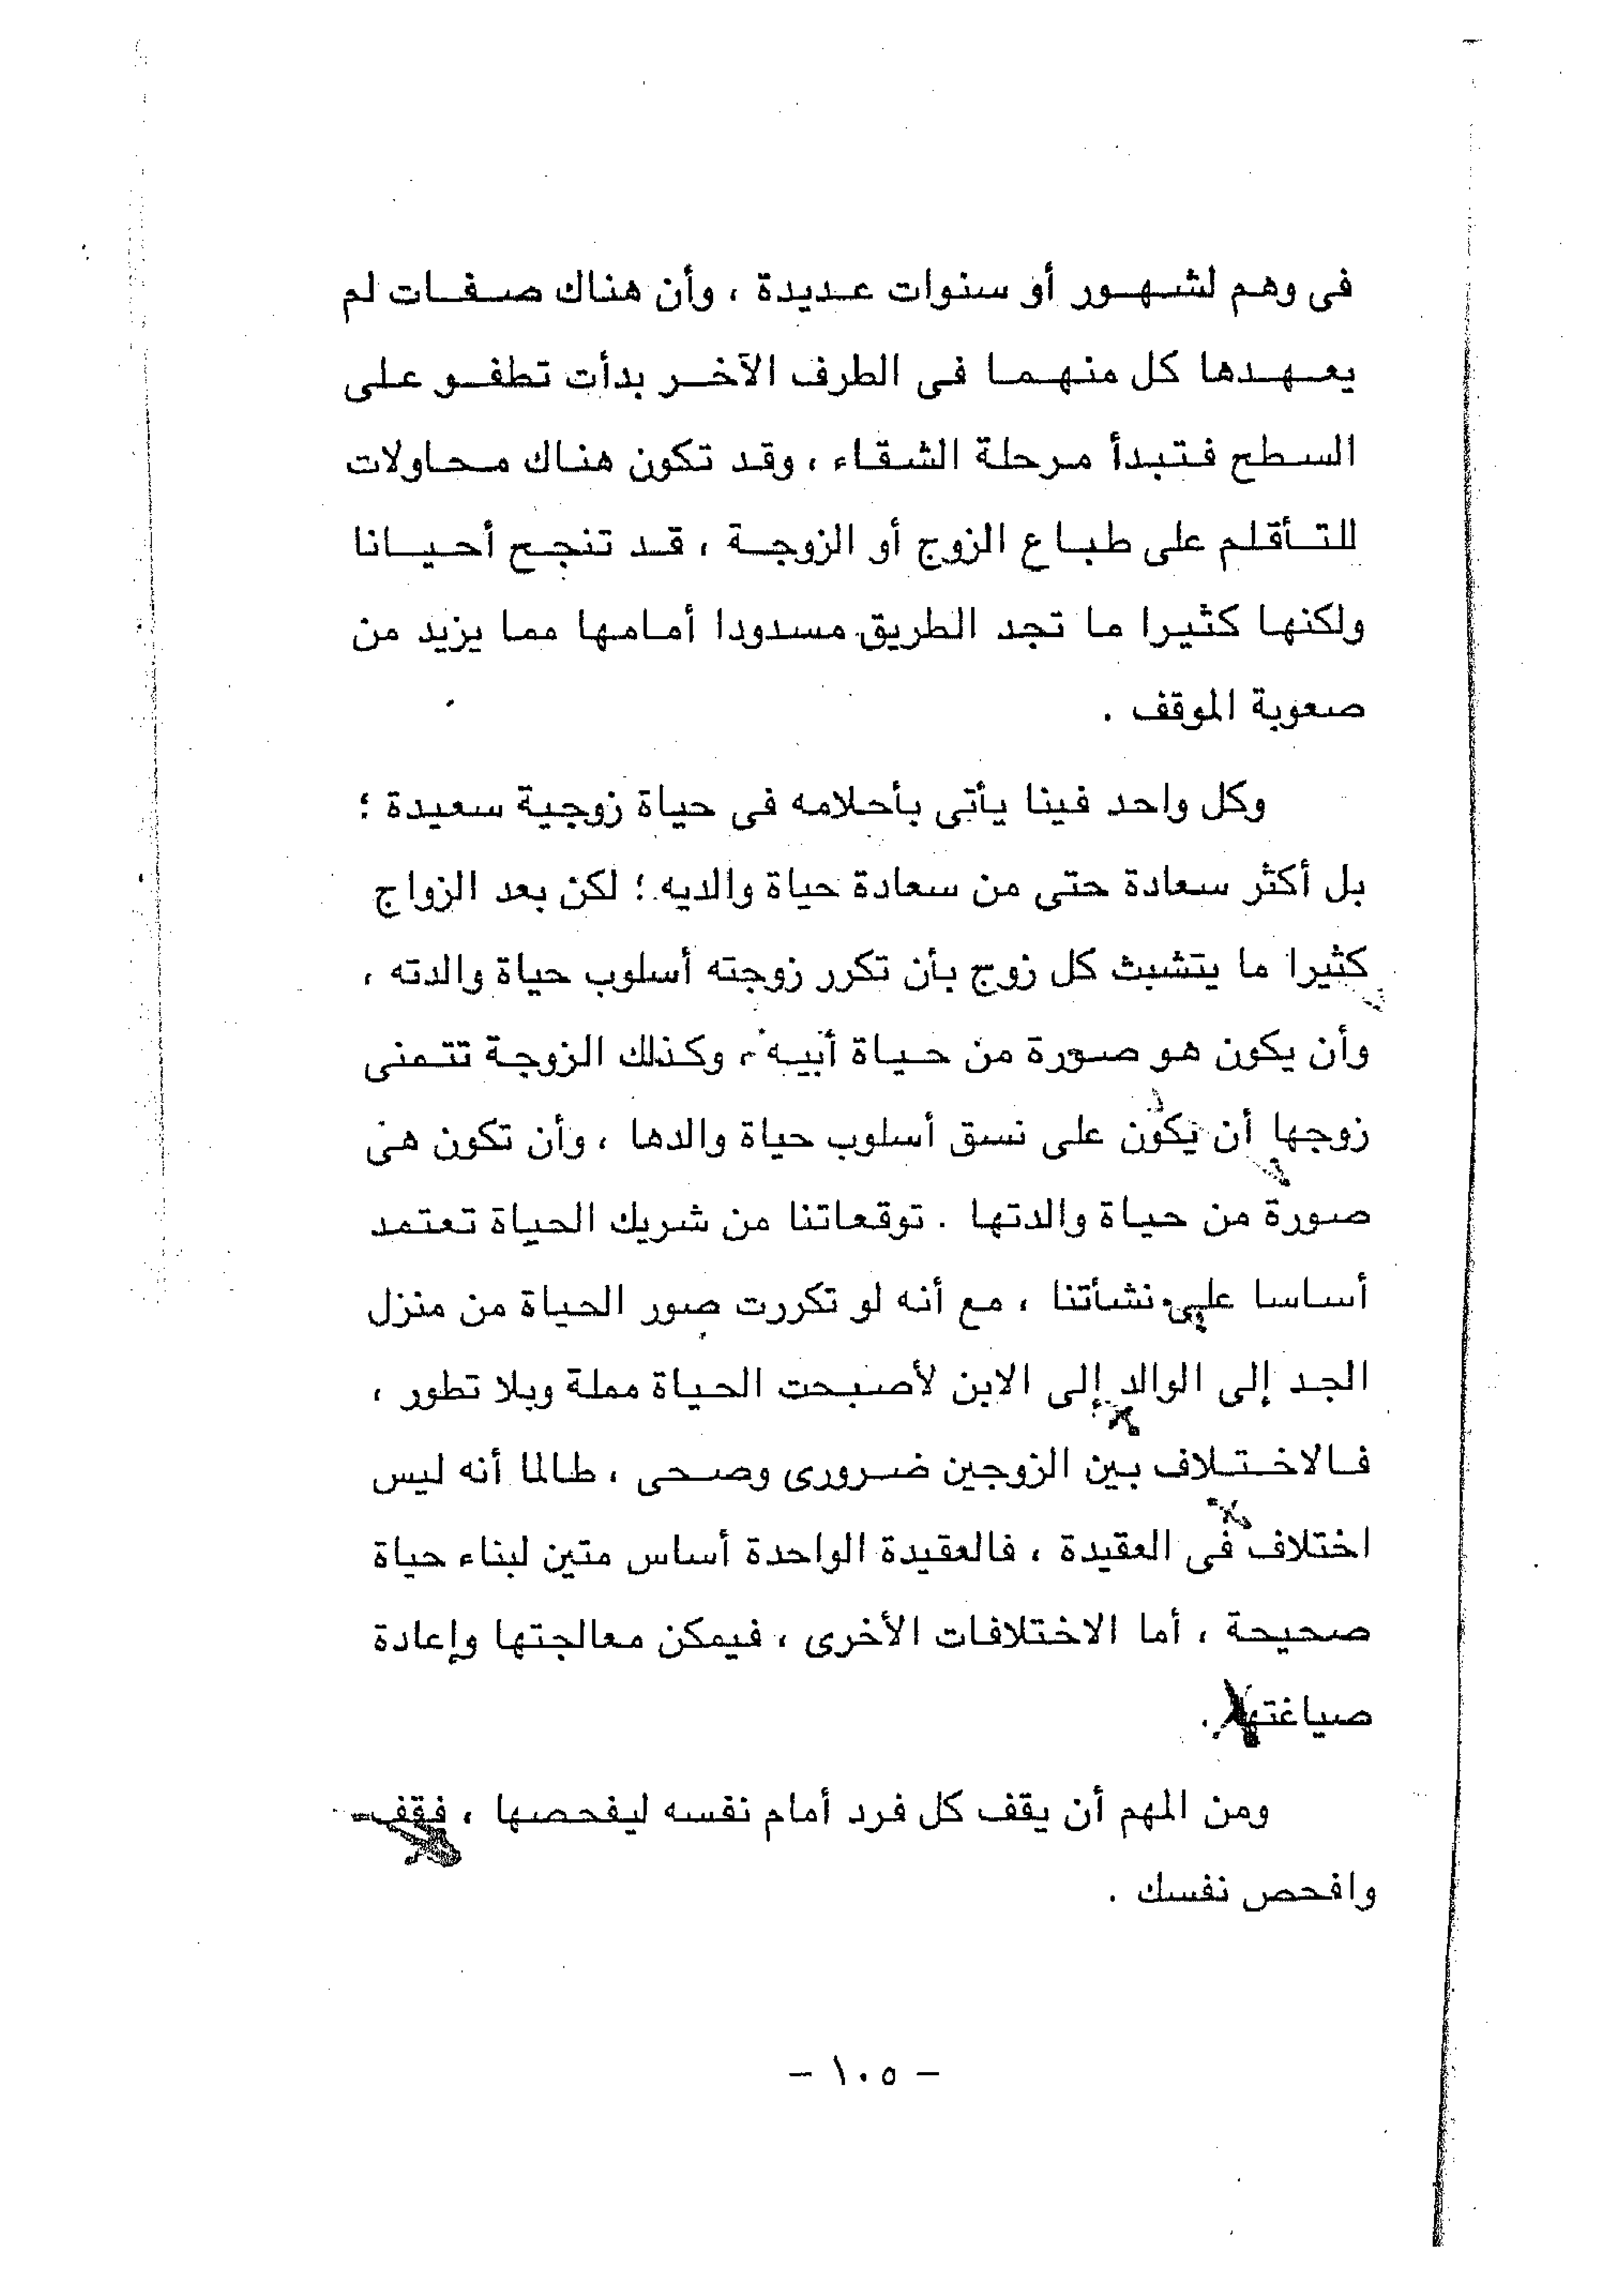 فى وهم لشهور أو سنوات عديدة ، وأن هناك صفات لم
يعهدها كل منهما فى الطرف الآخر بدأت تطفو على
السطح فتبدأ مرحلة الشقاء ، وقد تكون هناك محاولات
للتأقلم على طباع الزوج أو الزوجة ، قد تنجح أحيانا
ولكنها كثيرا ما تجد الطريق مسدودا أمامها مما يزيد من
صعوبة الموقف .
وكل واحد فينا يأتى بأحلامه فى حياة زوجية سعيدة ؛
بل أكثر سعادة حتى من سعادة حياة والديه ؛ لكن بعد الزواج
كثيرا ما يتشبث كل زوج بأن تكرر زوجته أسلوب حياة والدته ،
وأن يكون هو صورة من حياة أبيه ، وكذلك الزوجة تتمنى
زوجها أن يكون على نسق أسلوب حياة والدها ، وأن تكون هى
صورة من حياة والدتها . توقعاتنا من شريك الحياة تعتمد
أساسا على نشأتنا ، مع أنه لو تكررت صور الحياة من منزل
الجد إلى الوالد إلى الابن لأصبحت الحياة مملة وبلا تطور ،
فالاختلاف بين الزوجين ضرورى وصحى ، طالما أنه ليس
اختلاف فى العقيدة ، فالعقيدة الواحدة أساس متين لبناء حياة
صحيحة ، أما الاختلافات الأخرى ، فيمكن معالجتها وإعادة
صياغتها .
ومن المهم أن يقف كل فرد أمام نفسه ليفحصها ، فقف
وافحص نفسك .
- ١٠٥ -